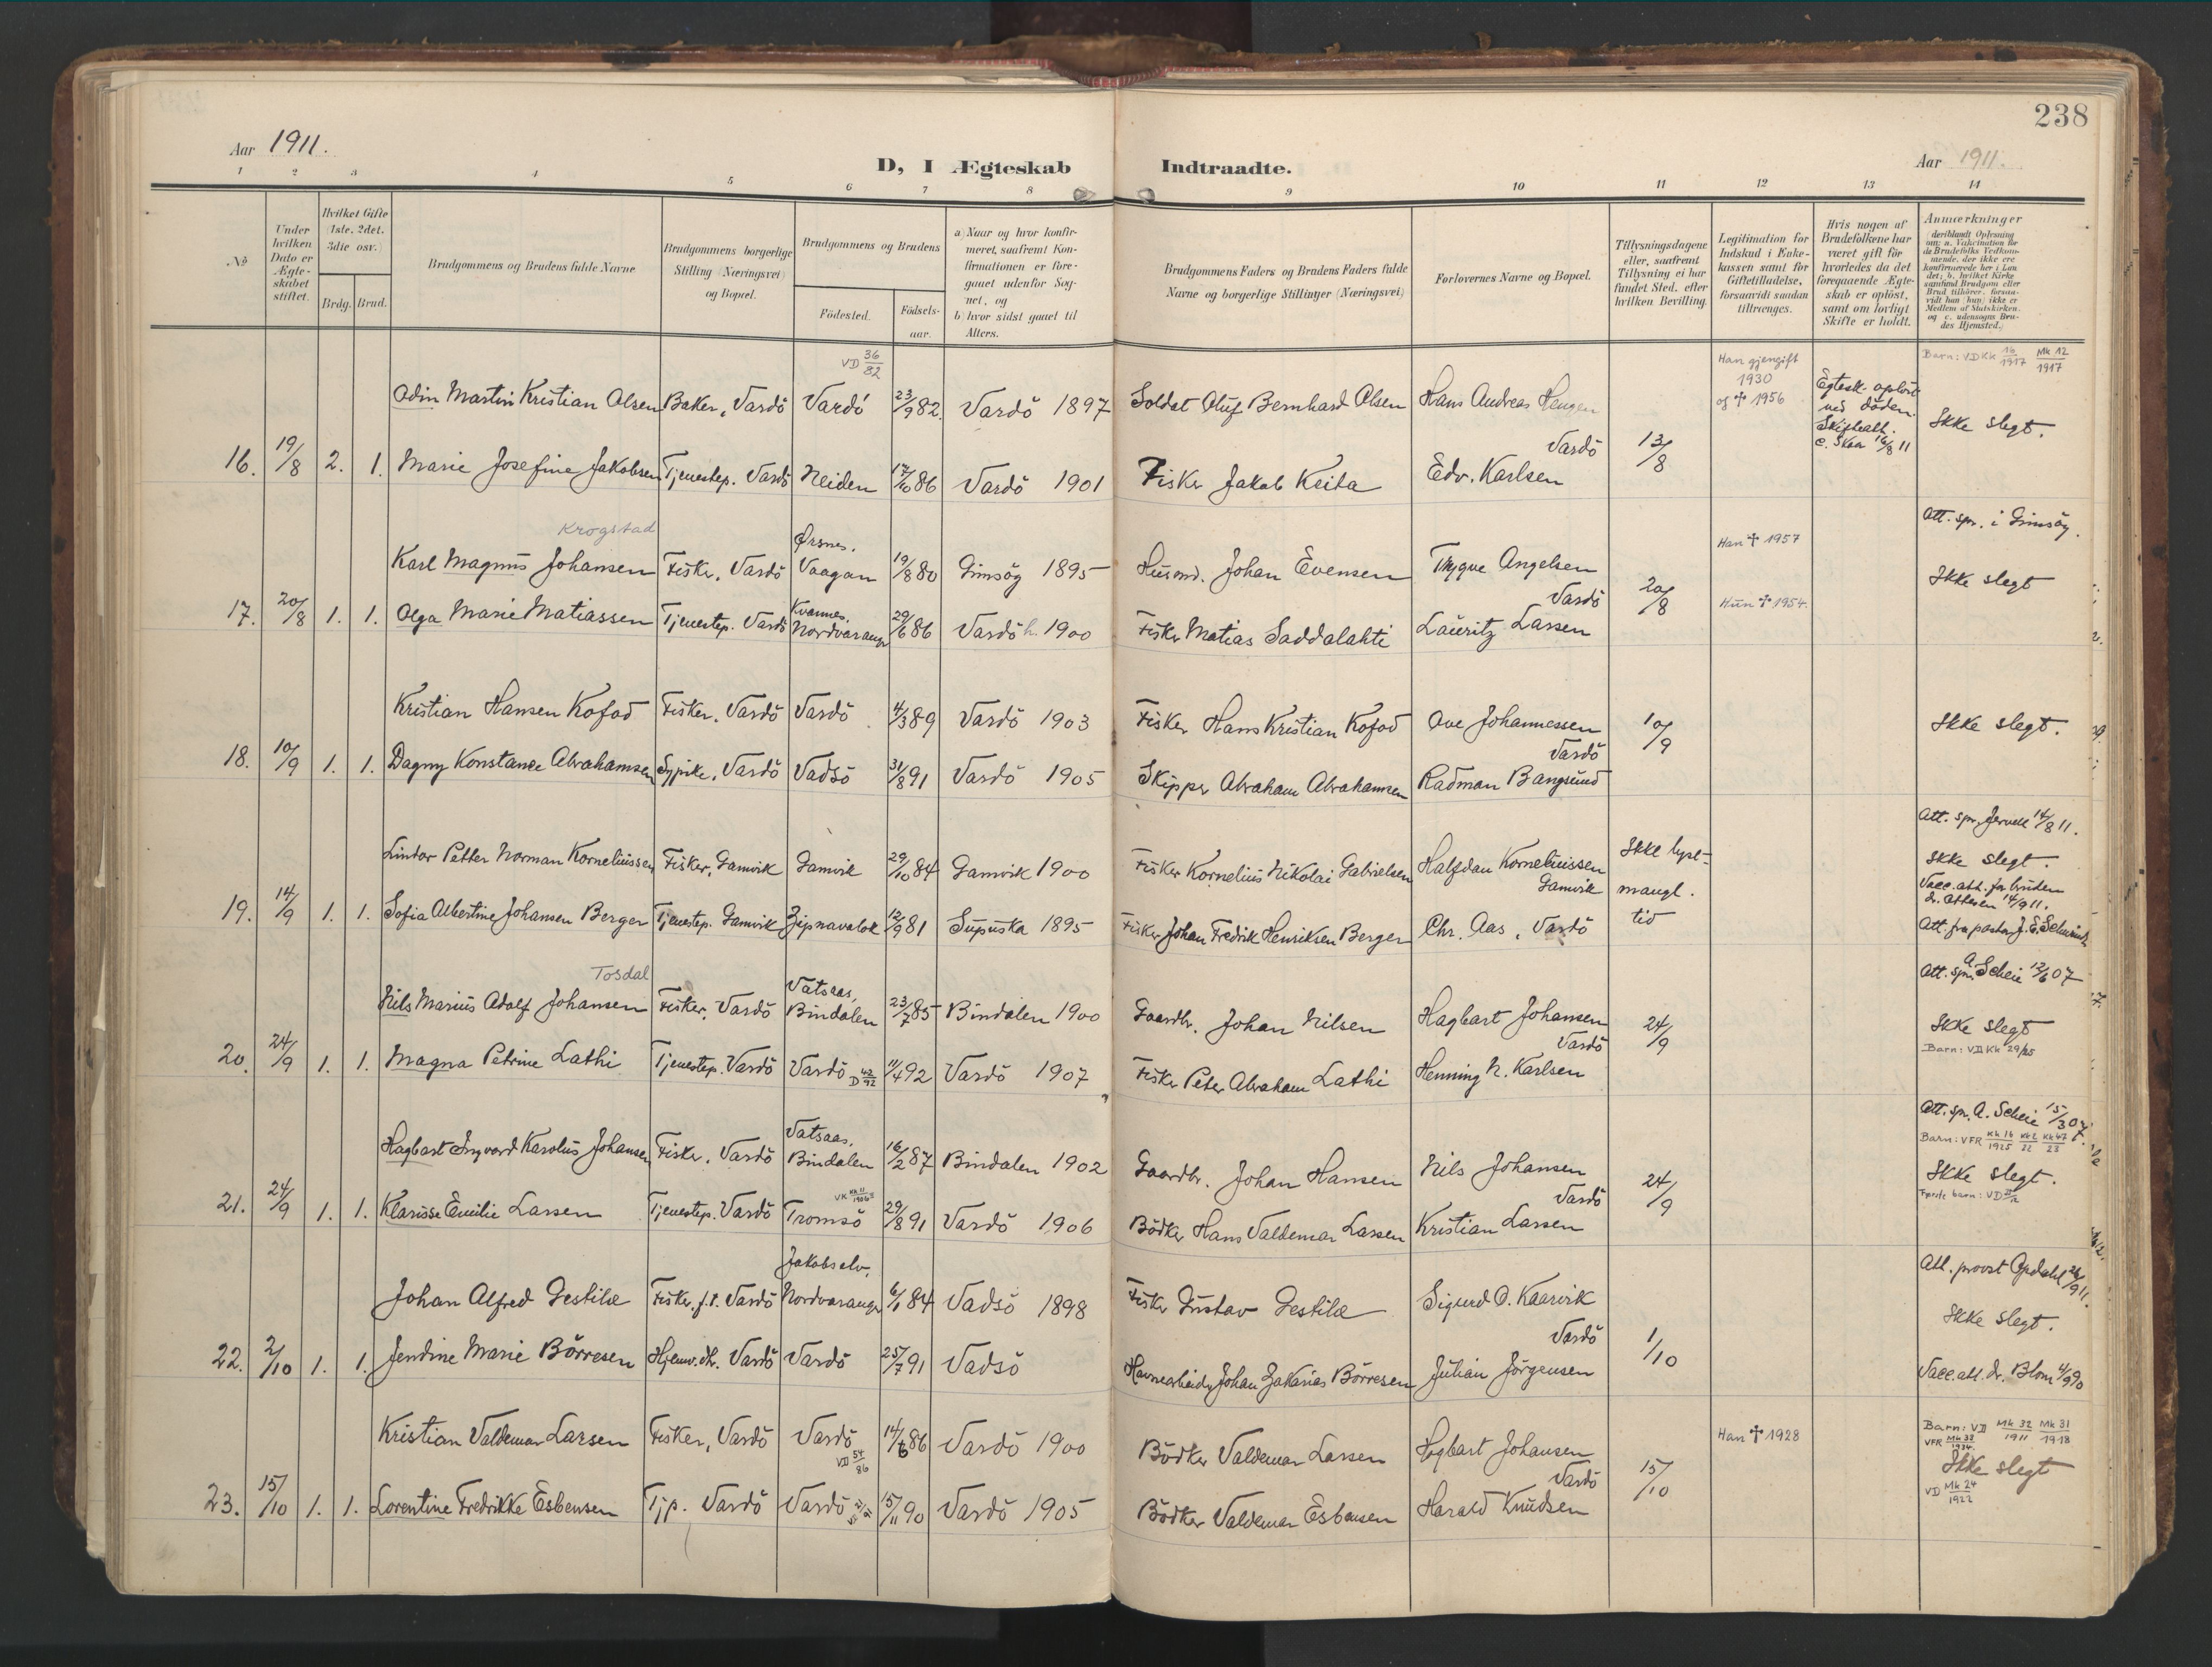 238
Aar 1911.
D, I Ægteskab Indtraadte.
Aar 1911.
1 2 3 4 5 6 7 8 9 10 11 12 13 14
No
Under hvilken Dato er Ægteskabet stiftet.
Hvilket Gifte (1ste, 2det, 3die osv.)
Brdg. Brud.
Brudgommens og Brudens fulde Navne
Brudgommens borgerlige Stilling (Næringsvei) og Bopæl.
Brudgommens og Brudens
Födested.
Födsels-aar.
a) Naar og hvor konfirmeret, saafremt Konfirmationen er foregaaet udenfor Sognet, og
b) hvor sidst gaaet til Alters.
Brudgommens Faders og Brudens Faders fulde Navne og borgerlige Stillinger (Næringsvei)
Forlovernes Navne og Bopæl.
Tillysningsdagene eller, saafremt Tillysning ei har fundet Sted, efter hvilken Bevilling.
Legitimation for Indskud i Enkekassen samt for Giftetilladelse, forsaavidt saadan tiltrænges.
Hvis nogen af Brudefolkene har været gift før hvorledes da det foregaaende Ægteskab er oplöst, samt om lovligt Skifte er holdt.
Anmerkninger (deriblandt Oplysning om: a. Vakcination for de Brudefolks Vedkommende, der ikke ere konfirmerede her i Landet; b. hvilket Kirkesamfund Brudgom eller Brud tilhörer, forsaavidt han (hun) ikke er Medlem af Statskirken, og c. udensogns Brudes Hjemsted.)
VD 36/82
Han gjengift 1930 og † 1956
Barn: VDKk 16/1917 Mk 12/1917
Odin Martin Kristian Olsen Baker, Vardö Vardö 23/9 82. Vardö 1897 Soldat Oluf Bernhard Olsen Hans Andreas Haugen
Egtesk. oplöst ved döden. Skifteatt. 16/8 11
Ikke slegt.
Vardö
16. 19/8 2. 1. Marie Josefine Jakobsen Tjenestep. Vardö Neiden 17/10 86 Vardö 1901 Fisker Jakob Keita Edv. Karlsen 13/8
Krogstad
Ørsnes.
Han † 1957
Att. spr. i Gimsöy.
Karl Magnus Johansen Fisker, Vardö Vaagan 19/8 80 Gimsöy 1895 Husmd. Johan Evensen Trygve Angelsen
Ikke slegt
Vardö
Kvannes.
Hun † 1954.
17. 20/8 1. 1. Olga Marie Matiassen Tjenestep. Vardö Nordvaranger 29/6 86 Vardö h. 1900 Fisker Matias Saddalahti Lauritz Larsen 20/8
Kristian Hansen Kofod Fisker, Vardö Vardö 4/3 89 Vardö 1903 Fisker Hans Kristian Kofod Ove Johannessen
Vardö
Ikke slegt.
18. 10/9 1. 1. Dagny Konstance Abrahamsen Sypike, Vardö Vadsö 31/8 91 Vardö 1905 Skipper Abraham Abrahamsen Radman Bangsund 10/9
Att. spr. Jervell 14/8 11.
Lindor Petter Norman Korneliussen Fisker, Gamvik Gamvik 29/10 84 Gamvik 1900 Fisker Kornelius Nikolai Gabrielsen Halfdan Korneliussen Ikke lyst-
Gamvik mangl.
Ikke slegt.
Vacc. att. for bruden
14/9 11.
19. 14/9 1. 1. Sofia Albertine Johansen Berger Tjenestep. Gamvik Zipnavalok 12/9 81 Supuska 1895 Fisker Johan Fredrik Henriksen Berger Chr. Aas, Vardö tid
Tosdal
Vatsaas,
Att. spr. A. Scheie 12/6 07
Nils Marius Adolf Johansen Fisker, Vardö Bindalen 23/7 85 Bindalen 1900 Gaardbr. Johan Nilsen Hagbart Johansen
Vardö
Ikke slegt
Barn: VDKk 29/25
20. 24/9 1. 1. Magna Petrine Lathi Tjenestep. Vardö Vardö D 42/92 11/4 92 Vardö 1907 Fisker Peter Abraham Lathi Henning N. Karlsen 24/9
Vatsaas.
Att. spr. A. Scheie 15/3 07.
Barn: VFR
Hagbart Ingvard Karolus Johansen Fisker, Vardö Bindalen 16/2 87 Bindalen 1902 Gaardbr. Johan Hansen Nils Johansen
Vardö
Ikke slegt.
Første barn: VD
21. 24/9 1. 1. Klarisse Emilie Larsen Tjenestep. Vardö Tromsö 29/8 91 Vardö 1906 Bödker Hans Valdemar Larsen Kristian Larsen 24/9
Jakobselv.
Att. provst Opdahl 26/9 11.
Johan Alfred Gestilæ Fisker, f.t. Vardö Nordvaranger 6/1 84 Vadsö 1898 Fisker Gustav Gestilæ Sigurd O. Kaarvik
Vardö
Ikke slegt.
22. 2/10 1. 1. Jendine Marie Börresen Hjemv. dt. Vardö Vardö 25/7 91 Vadsö Havnearbeider Johan Zakarias Börresen Julian Jörgensen 1/10
Vacc. att. dr. Blom 4/9 90
Kristian Valdemar Larsen Fisker, Vardö Vardö VD 54/86 14/6 86 Vardö 1900 Bödker Valdemar Larsen Hagbart Johansen
Han † 1928
Barn: VD Mk 32/1911 Mk 31/1918
VFR Mk 38/1924
Vardö
Ikke slegt
VD Mk 24/1922
23. 15/10 1. 1. Lorentine Fredrikke Esbensen Tjp. Vardö Vardö 15/11 90 Vardö 1905 Bödker Valdemar Esbensen Harald Knudsen 15/10